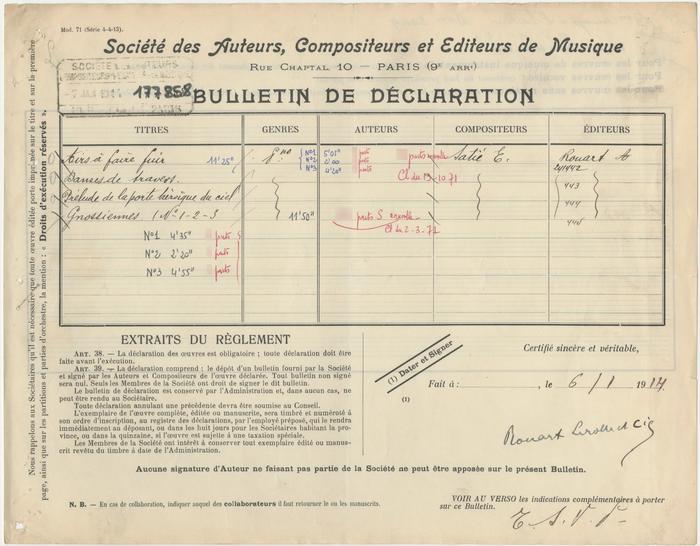 Mod. 71 (Série 4-4-13).
Société des Auteurs, Compositeurs et Editeurs de Musique
RUE CHAPTAL 10 — PARIS (9E ARRt)
177858
BULLETIN DE DÉCLARATION
TITRES GENRES AUTEURS COMPOSITEURS ÉDITEURS
Airs à faire fuir 11'25" pno N°1 5'01" N°2 2'00 N°3 4'20" Satie E. Rouart
Danses de travers. Cl du 13-10 71 241442
Prélude de la porte héroïque du ciel 443
Gnossiennes (N° 1-2-3 11'50" 444
Cl du 2-3-71
N°1 4'35"
N°2 2'20"
N°3 4'55"
EXTRAITS DU RÈGLEMENT
ART. 38. — La déclaration des œuvres est obligatoire ; toute déclaration doit être
faite avant l'exécution.
ART. 39. — La déclaration comprend : le dépôt d'un bulletin fourni par la Société
et signé par les Auteurs et Compositeurs de l'œuvre déclarée. Tout bulletin non signé
sera nul. Seuls les Membres de la Société ont droit de signer le dit bulletin.
Le bulletin de déclaration est conservé par l'Administration et, dans aucun cas, ne
peut être rendu au Sociétaire.
Toute déclaration annulant une précédente devra être soumise au Conseil.
L'exemplaire de l'œuvre complète, éditée ou manuscrite, sera timbré et numéroté à
son ordre d'inscription, au registre des déclarations, par l'employé préposé, qui le rendra
immédiatement au déposant, ou dans les huit jours pour les Sociétaires habitant la pro-
vince, ou dans la quinzaine, si l'œuvre est sujette à une taxation spéciale.
Les Membres de la Société ont intérêt à conserver tout exemplaire édité ou manus-
crit revêtu du timbre à date de l'Administration.
(1) Dater et Signer
Certifié sincère et véritable,
Fait à : , le 6/1 1914.
(1)
Rouart Lerolle et Cie
Aucune signature d'Auteur ne faisant pas partie de la Société ne peut être apposée sur le présent Bulletin.
N. B. — En cas de collaboration, indiquer auquel des collaborateurs il faut retourner le ou les manuscrits.
VOIR AU VERSO les indications complémentaires à porter
sur ce Bulletin.
Nous rappelons aux Sociétaires qu'il est nécessaire que toute œuvre éditée porte imprimée sur le titre et sur la première
page, ainsi que sur les partitions et parties d'orchestre, la mention : « Droits d'exécution réservés ».